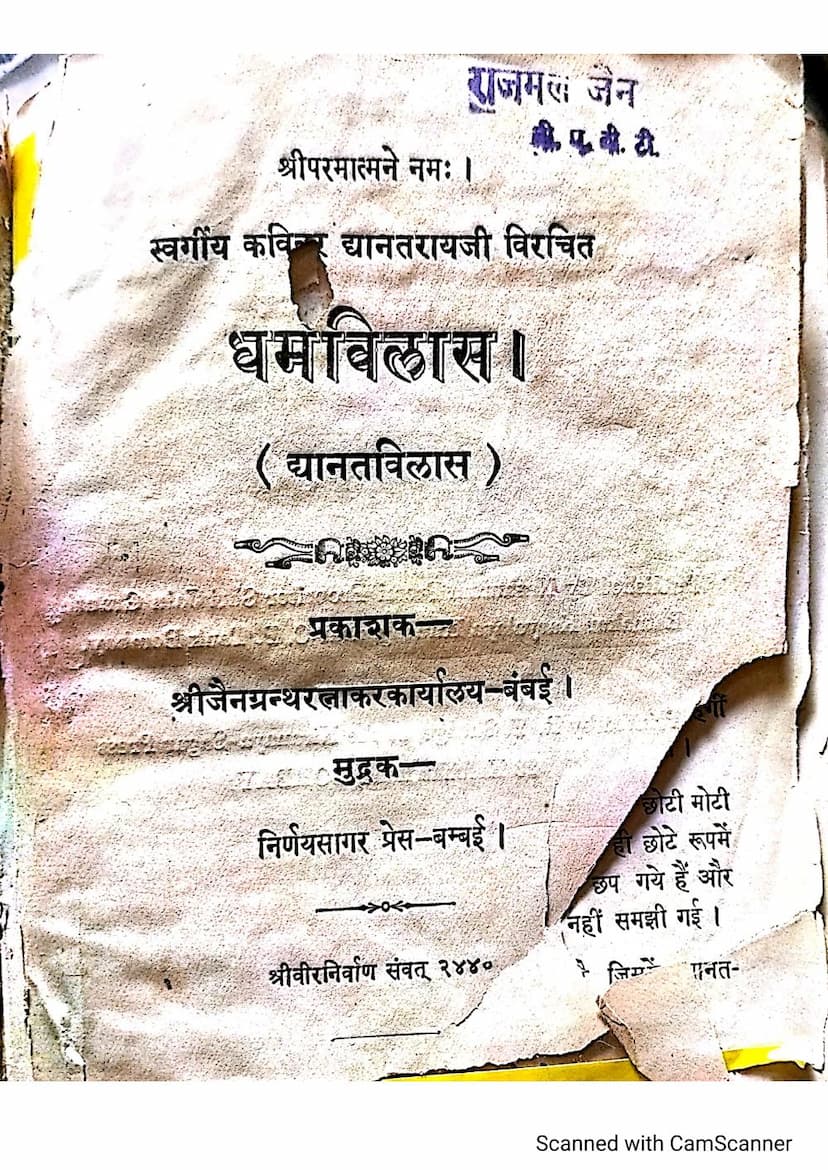 राजमल जैन
बी. ए. बी. टी.
श्रीपरमात्मने नमः ।
स्वर्गीय कविवर द्यानतरायजी विरचित
धर्मविलास ।
( द्यानतविलास )
प्रकाशक—
श्रीजैनग्रन्थरत्नाकरकार्यालय-बंबई ।
मुद्रक—
छोटी मोटी
निर्णयसागर प्रेस-बम्बई ।
ही छोटे रूपमें
छप गये हैं और
नहीं समझी गई ।
श्रीवीरनिर्वाण संवत् २४४०
Scanned with CamScanner